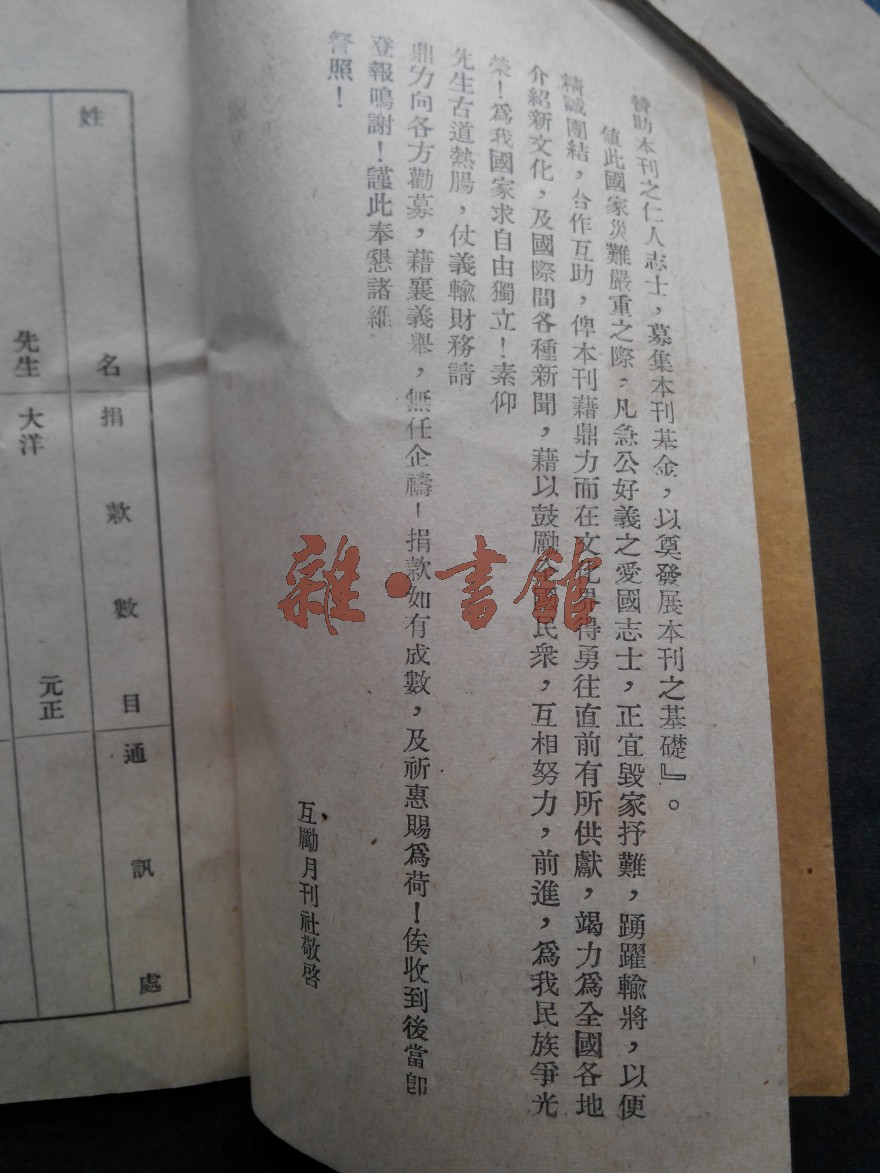 贊助本刊之仁人志士，募集本刊基金，以奠發展本刊之基礎』。
值此國家災難嚴重之際，凡急公好義之愛國志士，正宜毀家抒難，踴躍輸將，以便
精誠團結，合作互助，俾本刊藉鼎力而在文化界得勇往直前有所供獻，竭力爲全國各地
介紹新文化，及國際間各種新聞，藉以鼓勵全國民衆，互相努力，前進，爲我民族爭光
榮！爲我國家求自由獨立！素仰
先生古道熱腸，仗義輸財務請
鼎力向各方勸募，藉襄義舉，無任企禱！捐款如有成數，及祈惠賜爲荷！俟收到後當卽
登報鳴謝！謹此奉懇諸維
詧照！
互勵月刊社敬啓
姓名
捐款數目
通訊處
先生
大洋
元正
雜·書館